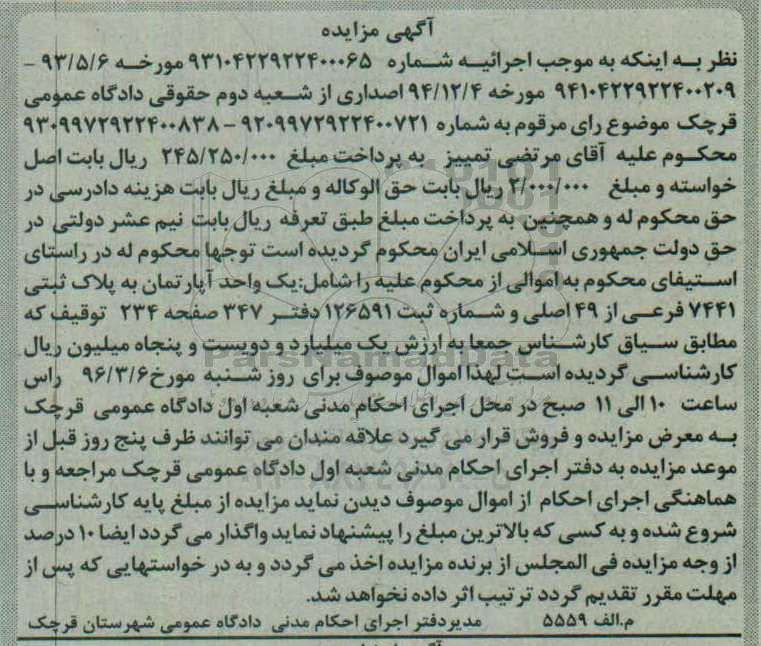 آگهی مزایده
نظر به اینکه به موجب اجرائیه شماره ۹۳۱۰۴۲۲۹۲۲۴۰۰۰۶۵ مورخه ۹۳/۵/۶ –
۹۴۱۰۴۲۲۹۲۲۴۰۰۲۰۹ مورخه ۹۴/۱۲/۴ اصداری از شعبه دوم حقوقی دادگاه عمومی
قرچک موضوع رای مرقوم به شماره ۹۲۰۹۹۷۲۹۲۲۴۰۰۷۲۱ – ۹۳۰۹۹۷۲۹۲۲۴۰۰۸۳۸
محکوم علیه آقای مرتضی تمییز به پرداخت مبلغ ۲۴۵/۲۵۰/۰۰۰ ریال بابت اصل
خواسته و مبلغ ۲/۰۰۰/۰۰۰ ریال بابت حق الوکاله و مبلغ ریال بابت هزینه دادرسی در
حق محکوم له و همچنین به پرداخت مبلغ طبق تعرفه ریال بابت نیم عشر دولتی در
حق دولت جمهوری اسلامی ایران محکوم گردیده است توجها محکوم له در راستای
استیفای محکوم به اموالی از محکوم علیه را شامل:یک واحد آپارتمان به پلاک ثبتی
۷۴۴۱ فرعی از ۴۹ اصلی و شماره ثبت ۱۲۶۵۹۱ دفتر ۳۴۷ صفحه ۲۳۴ توقیف که
مطابق سیاق کارشناس جمعا به ارزش یک میلیارد و دویست و پنجاه میلیون ریال
کارشناسی گردیده است لهذا اموال موصوف برای روز شنبه مورخ۹۶/۳/۶ راس
ساعت ۱۰ الی ۱۱ صبح در محل اجرای احکام مدنی شعبه اول دادگاه عمومی قرچک
به معرض مزایده و فروش قرار می گیرد علاقه مندان می توانند ظرف پنج روز قبل از
موعد مزایده به دفتر اجرای احکام مدنی شعبه اول دادگاه عمومی قرچک مراجعه و با
هماهنگی اجرای احکام از اموال موصوف دیدن نماید مزایده از مبلغ پایه کارشناسی
شروع شده و به کسی که بالاترین مبلغ را پیشنهاد نماید واگذار می گردد ایضا ۱۰ درصد
از وجه مزایده فی المجلس از برنده مزایده اخذ می گردد و به در خواستهایی که پس از
مهلت مقرر تقدیم گردد ترتیب اثر داده نخواهد شد.
م.الف ۵۵۵۹ مدیردفتر اجرای احکام مدنی دادگاه عمومی شهرستان قرچک
ParsNamadData